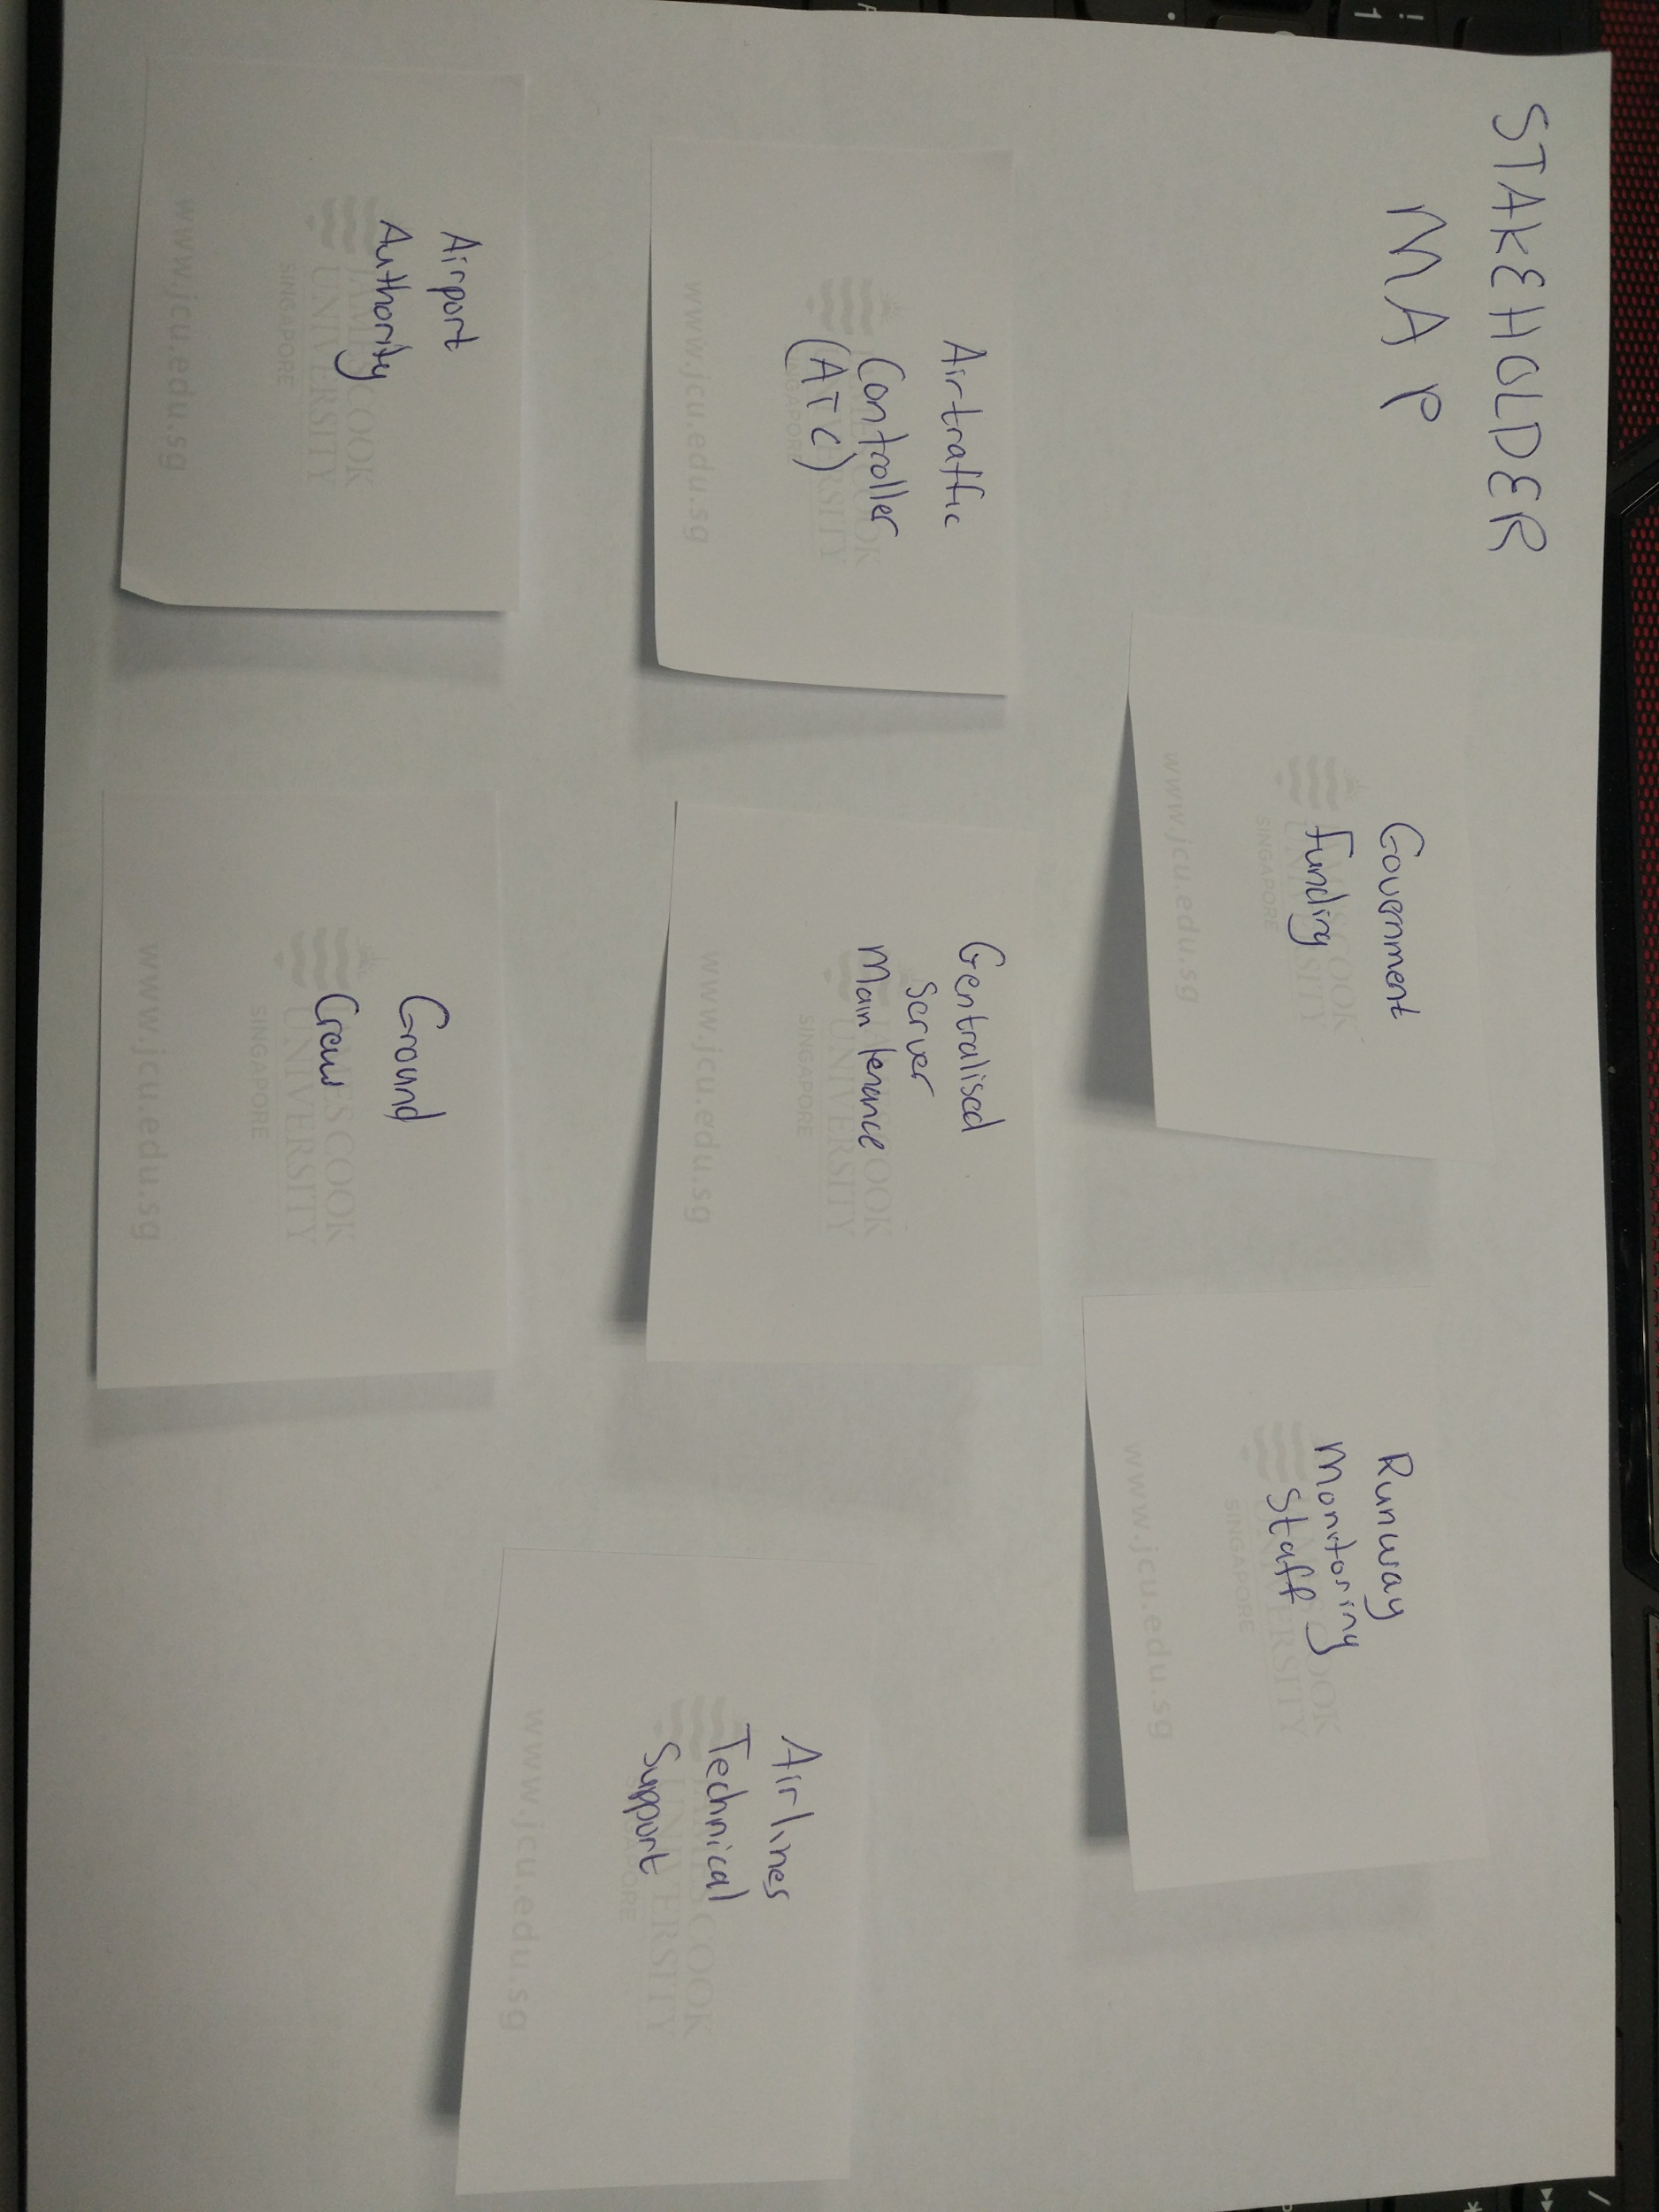 STAKEHOLDER
MAP
Government
funding
JAMES COOK
UNIVERSITY
SINGAPORE
www.jcu.edu.sg
Runway
Monitoring
Staff
JAMES COOK
UNIVERSITY
SINGAPORE
www.jcu.edu.sg
Airtraffic
Controller
(ATC)
JAMES COOK
UNIVERSITY
SINGAPORE
www.jcu.edu.sg
Centralised
Server
Maintenance
JAMES COOK
UNIVERSITY
SINGAPORE
www.jcu.edu.sg
Airlines
Technical
Support
JAMES COOK
UNIVERSITY
SINGAPORE
www.jcu.edu.sg
Airport
Authority
JAMES COOK
UNIVERSITY
SINGAPORE
www.jcu.edu.sg
Ground
Crew
JAMES COOK
UNIVERSITY
SINGAPORE
www.jcu.edu.sg